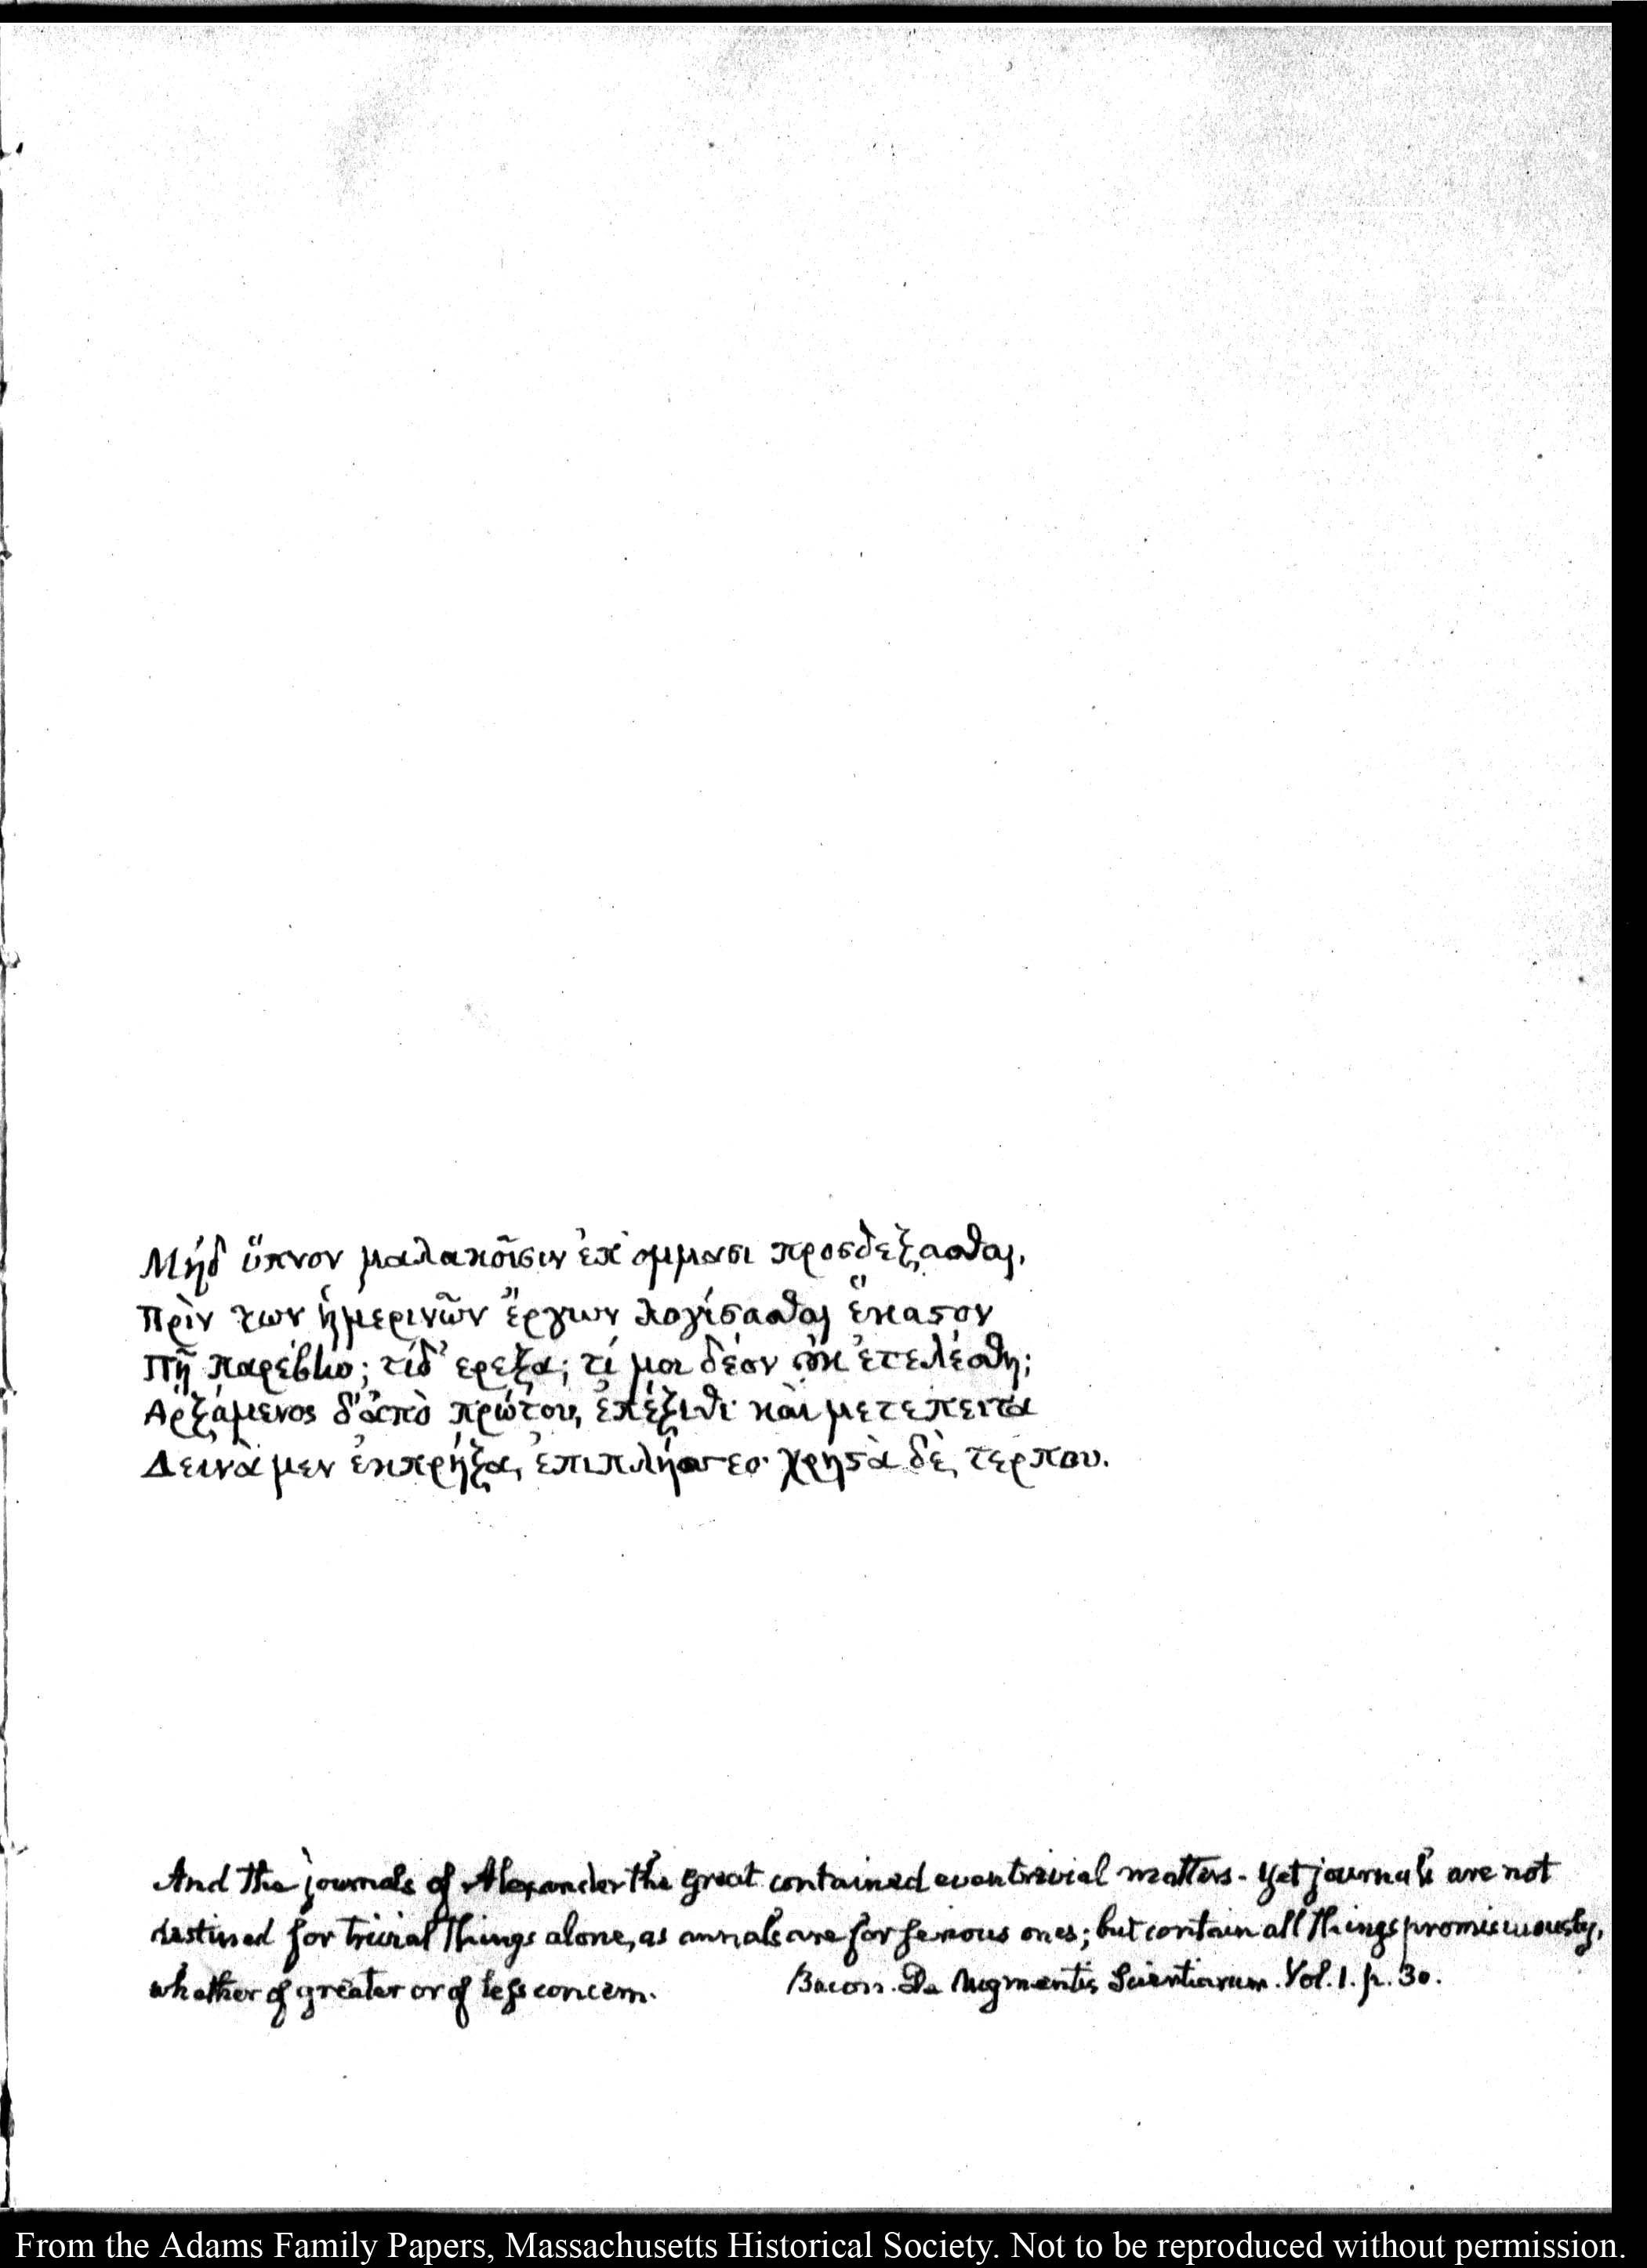 Μήδ ὕπνον μαλακοῖσιν ἐπ' ομμασι προσδεξασθαι,
Πρὶν των ἡμερινῶν ἔργων λογίσασθαι ἕκαϛον
Πῆ παρέβην; τίδ' ερεξα; τί μοι δέον ȣ̓κ ἐτελέσθη;
Αρξάμενος δ'ἀπὸ πρώτου, ἐπέξιθι· κὰι μετεπειτα
Δεινὰ μεν ἐκπρήξα, ἐπιπλήσσεο· χρηϛὰ δὲ, τερπου.
And the journals of Alexander the great contained even trivial matters. Yet journals are not
destined for trivial things alone, as annals are for serious ones; but contain all things promiscuously,
whether of greater or of less concern. Bacon. De Augmentis Scientiarum. Vol. 1. p. 30.
From the Adams Family Papers, Massachusetts Historical Society. Not to be reproduced without permission.